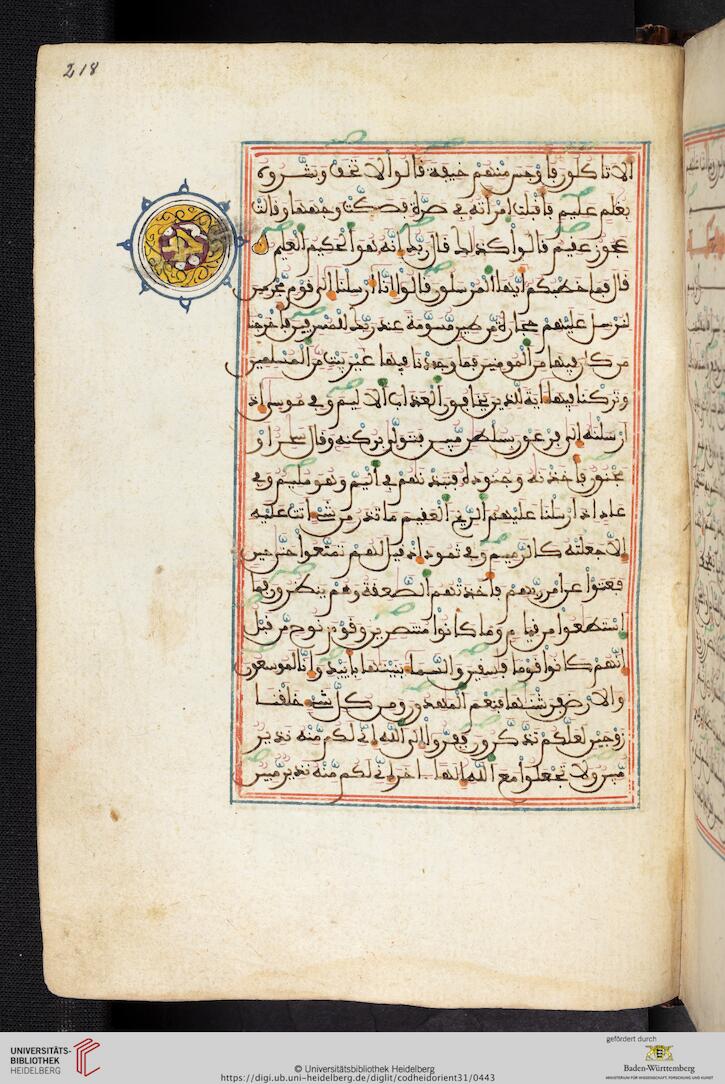 218
الا تاكلون فاوجس منهم خيفة قالوا لا تخف وبشروه
بغلم عليم فاقبلت امراته في صرة فصكت وجهها وقالت
عجوز عقيم قالوا كذلك قال ربك انه هو الحكيم العليم
قال فما خطبكم ايها المرسلون قالوا انا ارسلنا الى قوم مجرمين
لنرسل عليهم حجارة من طين مسومة عند ربك للمسرفين فاخرجنا
من كان فيها من المومنين فما وجدنا فيها غير بيت من المسلمين
وتركنا فيها اية للذين يخافون العذاب الاليم وفي موسى اذ
ارسلنه الى فرعون بسلطن مبين فتولى بركنه وقال سحر او
مجنون فاخذنه وجنوده فنبذنهم في اليم وهو مليم وفي
عاد اذ ارسلنا عليهم الريح العقيم ما تذر من شيء اتت عليه
الا جعلته كالرميم وفي ثمود اذ قيل لهم تمتعوا حتى حين
فعتوا عن امر ربهم فاخذتهم الصعقة وهم ينظرون فما
استطعوا من قيام وما كانوا منتصرين وقوم نوح من قبل
انهم كانوا قوما فسقين والسماء بنينها باييد وانا لموسعون
والارض فرشنها فنعم المهدون ومن كل شيء خلقنا
زوجين لعلكم تذكرون ففروا الى الله اني لكم منه نذير
مبين ولا تجعلوا مع الله الها اخر اني لكم منه نذير مبين
UNIVERSITÄTS-
BIBLIOTHEK
HEIDELBERG
© Universitätsbibliothek Heidelberg
https://digi.ub.uni-heidelberg.de/diglit/codheidorient31/0443
gefördert durch
Baden-Württemberg
MINISTERIUM FÜR WISSENSCHAFT, FORSCHUNG UND KUNST